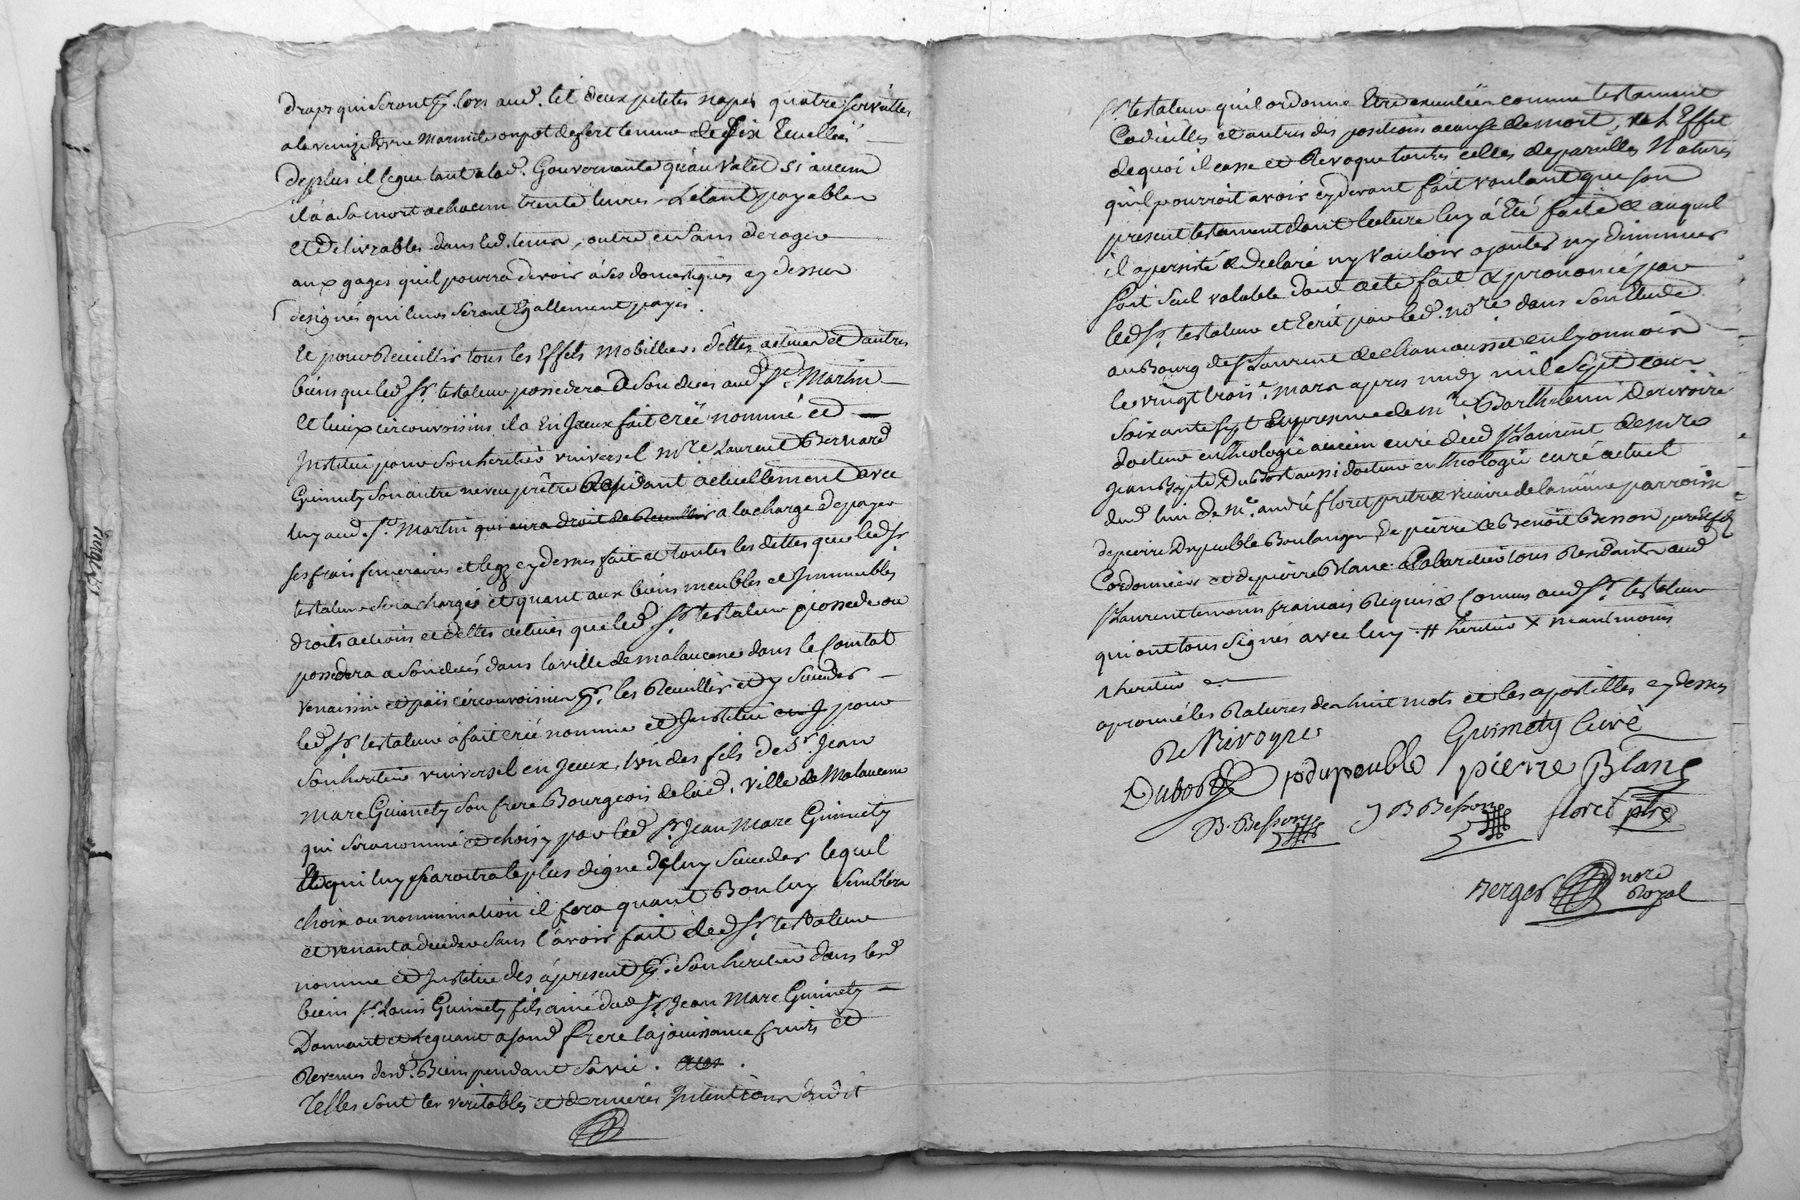 draps qui seront pr. lors aud. lit deux petites napes quatre serviettes
a la venize une marmite ou pot de fert tenant de six Ecuelles
deplus il legue tant a lad. Gouvernante qu'au valet si aucun
il a a sa mort a chacun trente livres payables
et delivrables dans led. tems, outre et sans deroger
aux gages quil pourra devoir a ses domestiques cy dessus
designés qui leurs seront Egallement payés.
Et pour Recuillir tous les Effets mobilliers dettes actives et autres
biens que led. Sr. testateur possedera a son deces aud. St. Martin
et lieux circonvoisins il a En Iceux fait créé nommé et
Institué pour son heritier universel mre Laurent Bernard
Guimety son autre neveu prêtre Residant actuellement avec
luy aud. St. Martin qui aura droit de Recuillir a la charge de payer
ses frais funeraires et legs cy dessus fait et toutes les dettes que led. Sr.
testateur sera chargés et quant aux biens meubles et Immeubles
droits actions et dettes actives que led. Sr. testateur possede ou
possedera a son decés dans la ville de malaucene dans le Comtat
venaissin et païs circonvoisins pr. les Recuillir et y succeder
led. Sr. testateur a fait créé nommé et Institué en J pour
son heritier universel en Iceux, l'un des fils de Sr. Jean
Marc Guimety son frere Bourgeois de lad. ville de Malaucene
qui sera nommé et choisy par led. Sr. Jean Marc Guimety
et qui luy paroitra le plus digne de luy succeder lequel
choix ou nommination il fera quant Bon luy semblera
et venant a deceder sans l'avoir fait led. Sr. testateur
nomme et Institue dès à present pr. son heritier dans lesd.
biens Sr. Louis Guimety fils ainé dud. Sr. Jean Marc Guimety
Donnant et Leguant a sond. frere la jouissance fruits et
Revenus desd. Biens pendant sa vie.
Telles sont les veritables et dernières Intentions dudit
Sr. testateur quil ordonne Etre executées comme testament
Codicilles et autres dispositions a cause de mort, a L'Effet
de quoi il casse et Revoque toutes celles de pareilles Natures
quil pourroit avoir cy devant fait voulant que son
present testament dont lecture luy a Eté faite et auquel
il a persisté et declaré ny vouloir ajouter ny diminuer
soit seul valable dont acte fait et prononcé par
led. Sr. testateur et Ecrit par led. nore dans son Etude
au Bourg de St. Laurent de chamousset en lyonnois
le vingt trois.e mars apres midy mil sept cent
soixante sept En presence de mre Barthelemi Derivoire
docteur en theologie ancien curé dud. St. Laurent de mre
Jean Bapte Dubost aussi docteur en theologie curé actuel
dud. lieu de mre. andré floret pretre vicaire de la même parroisse
de pierre Dupeuble Boulanger de pierre et Benoît Besson
Cordonniers et de pierre Blanc Cabaretier tous Residants aud.
St. Laurent temoins francais Requis et Connus aud. Sr. testateur
qui ont tous signés avec luy. # heritier x neantmoins
heritier
aprouvé les Ratures de huit mots et les apostilles cy dessus
De Rivoyre Guimety Curé
Dubost p dupeuble pierre Blanc
B. Besson J B Besson floret ptre
Berger nore
Royal